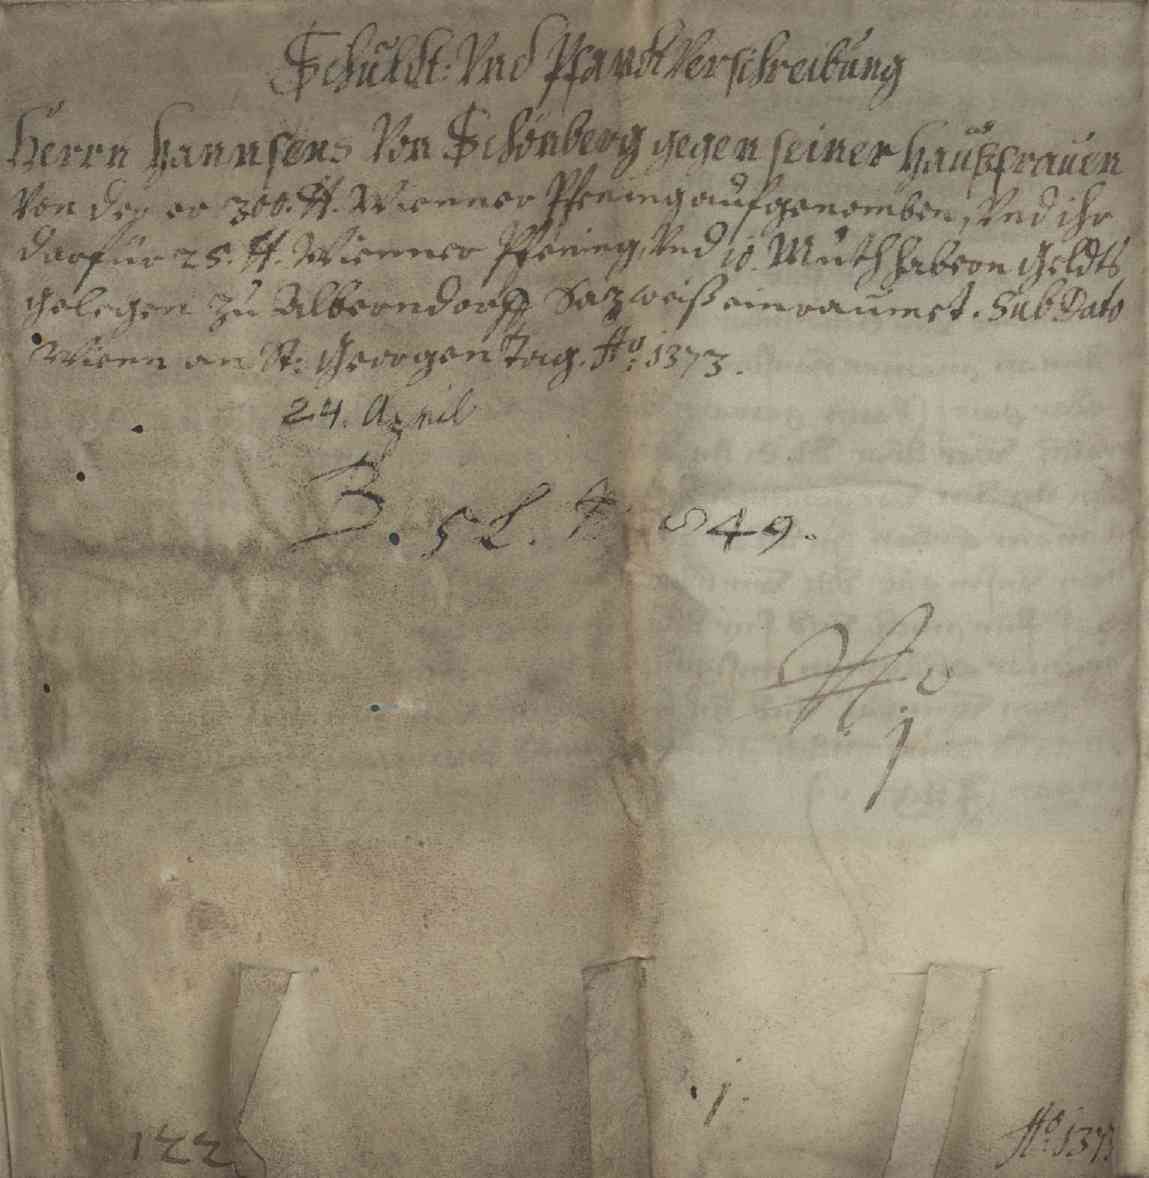 Schuldt: Und Pfandt Verschreibung
Herrn Hannsens Von Schönberg gegen seiner Haußfrauen
Von der er 300. ₰. Wienner Pfening aufgenomben, Und ihr
darfür 25. ₰. Wienner Pfening, Und 10. Muth habern Geldts
gelegen zu Alberndorff Sazweiß einraumet. Sub Dato
Wienn an St: Georgen Tag. Aº. 1373.
24. April
B. 5 L. 849.
Nº
1
1
133
Aº. 1373